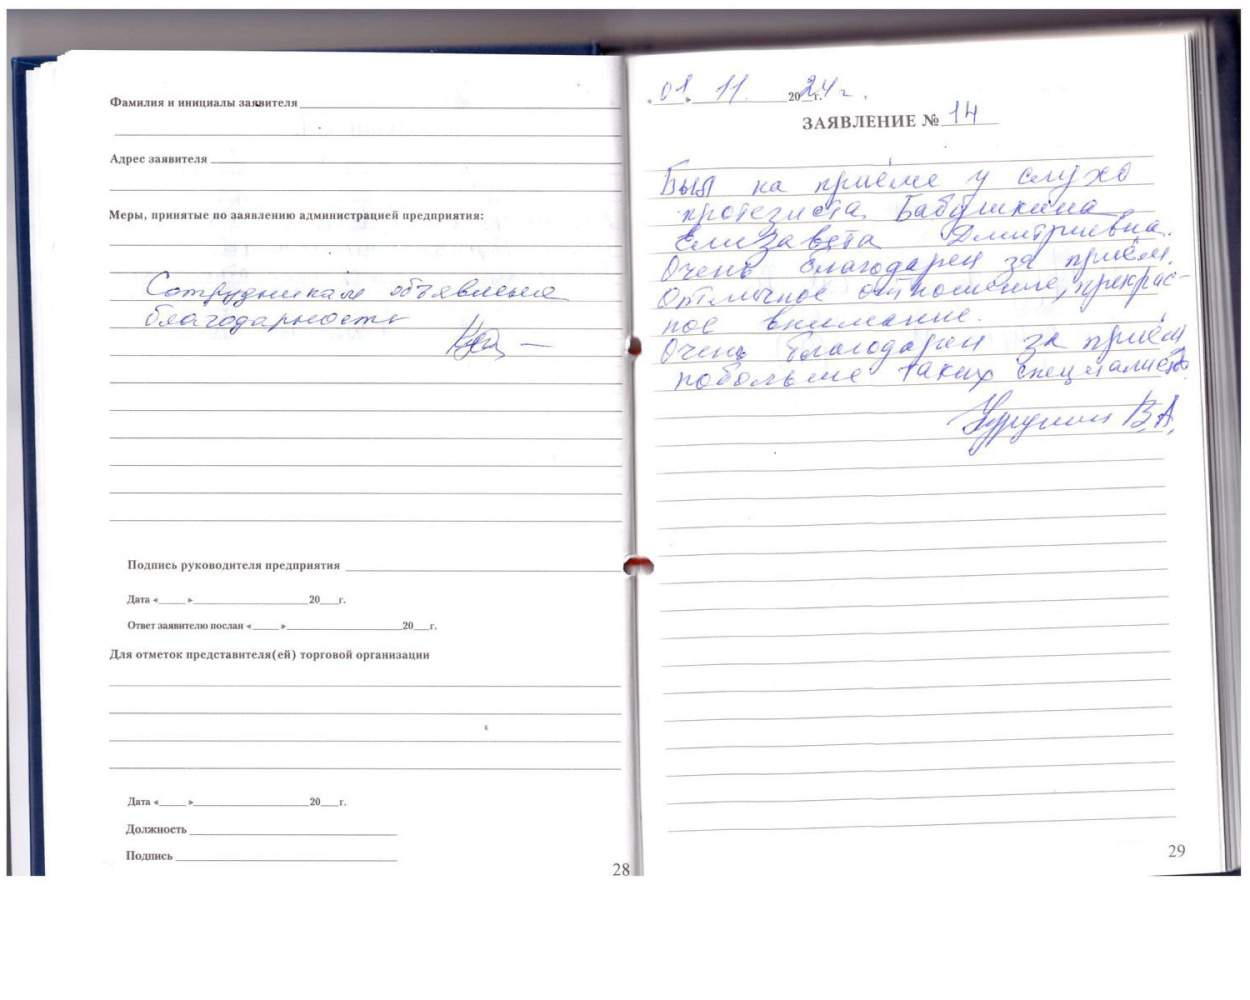 Фамилия и инициалы заявителя
Адрес заявителя
Меры, принятые по заявлению администрацией предприятия:
Сотрудникам объявлена
благодарность
Подпись руководителя предприятия
Дата «____» ____ 20___г.
Ответ заявителю послан «____» ____ 20___г.
Для отметок представителя(ей) торговой организации
Дата «____» ____ 20___г.
Должность
Подпись
28
«01» 11. 2024г.
ЗАЯВЛЕНИЕ № 14
Был на приёме у слухо
протезиста Бабушкина
Елизавета Дмитриевна.
Очень благодарен за приём.
Отличное отношение, прекрас-
ное внимание.
Очень благодарен за приём
побольше таких специалистов
В.А.
29